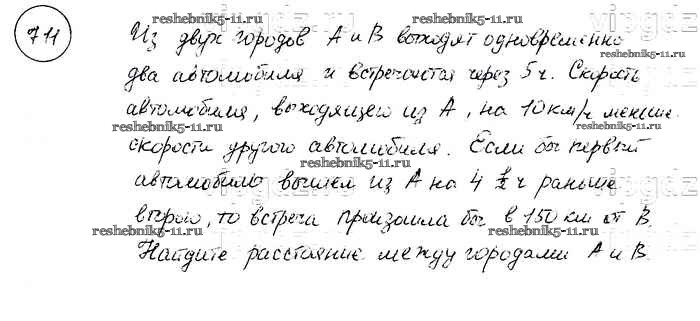 711
Из двух городов А и В выходят одновременно
два автомобиля и встречаются через 5 ч. Скорость
автомобиля, выходящего из А, на 10 км/ч меньше
скорости другого автомобиля. Если бы первый
автомобиль вышел из А на 4 1/2 ч раньше
второго, то встреча произошла бы в 150 км от В.
Найдите расстояние между городами А и В
reshebnik5-11.ru
reshebnik5-11.ru
reshebnik5-11.ru
reshebnik5-11.ru
reshebnik5-11.ru
reshebnik5-11.ru
reshebnik5-11.ru
reshebnik5-11.ru
reshebnik5-11.ru
reshebnik5-11.ru